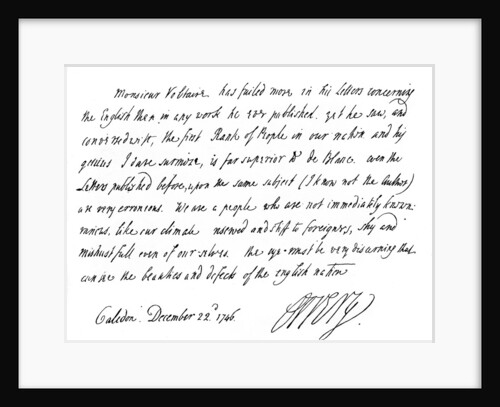 Monsieur Voltaire has failed more in his Letters concerning
the English than in any work he ever published. yet he saw, and
conversed with, the first Rank of People in our nation and his
genius I dare surmize, is far superior to de Blanc. even the
Letters published before, upon the same subject (I know not the Author)
are very erroneous. We are a people who are not immediately known.
like our climate reserved and stiff to foreigners, shy and
mistrustfull even of our-selves. the eye must be very discerning that
can see the beauties and defects of the english nation
Caledon. December 22d 1746.
Orrery.